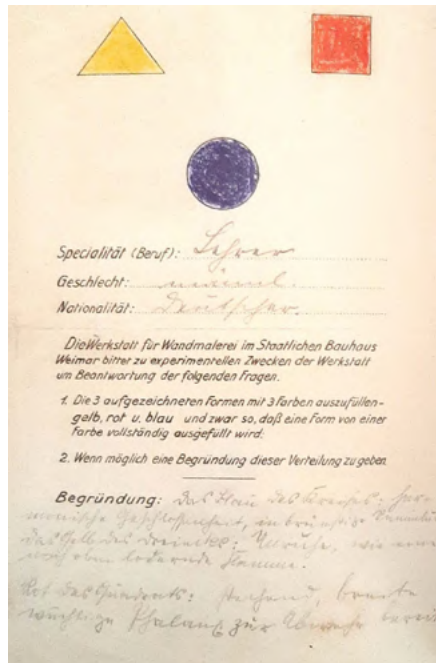 Specialität (Beruf): Lehrer
Geschlecht: männl.
Nationalität: Deutscher.
Die Werkstatt für Wandmalerei im Staatlichen Bauhaus
Weimar bittet zu experimentellen Zwecken der Werkstatt
um Beantwortung der folgenden Fragen.
1. Die 3 aufgezeichneten Formen mit 3 Farben auszufüllen-
gelb, rot u. blau und zwar so, daß eine Form von einer
Farbe vollständig ausgefüllt wird.
2. Wenn möglich eine Begründung dieser Verteilung zu geben.
Begründung: Das Blau des Kreises: har-
monische Geschlossenheit, inbrünstige
das Gelb des Dreiecks: Unruhe, wie eine
nach oben lodernde Flamme.
Rot des Quadrats: stehend, breite
wuchtige Phalanx zur Abwehr bereit